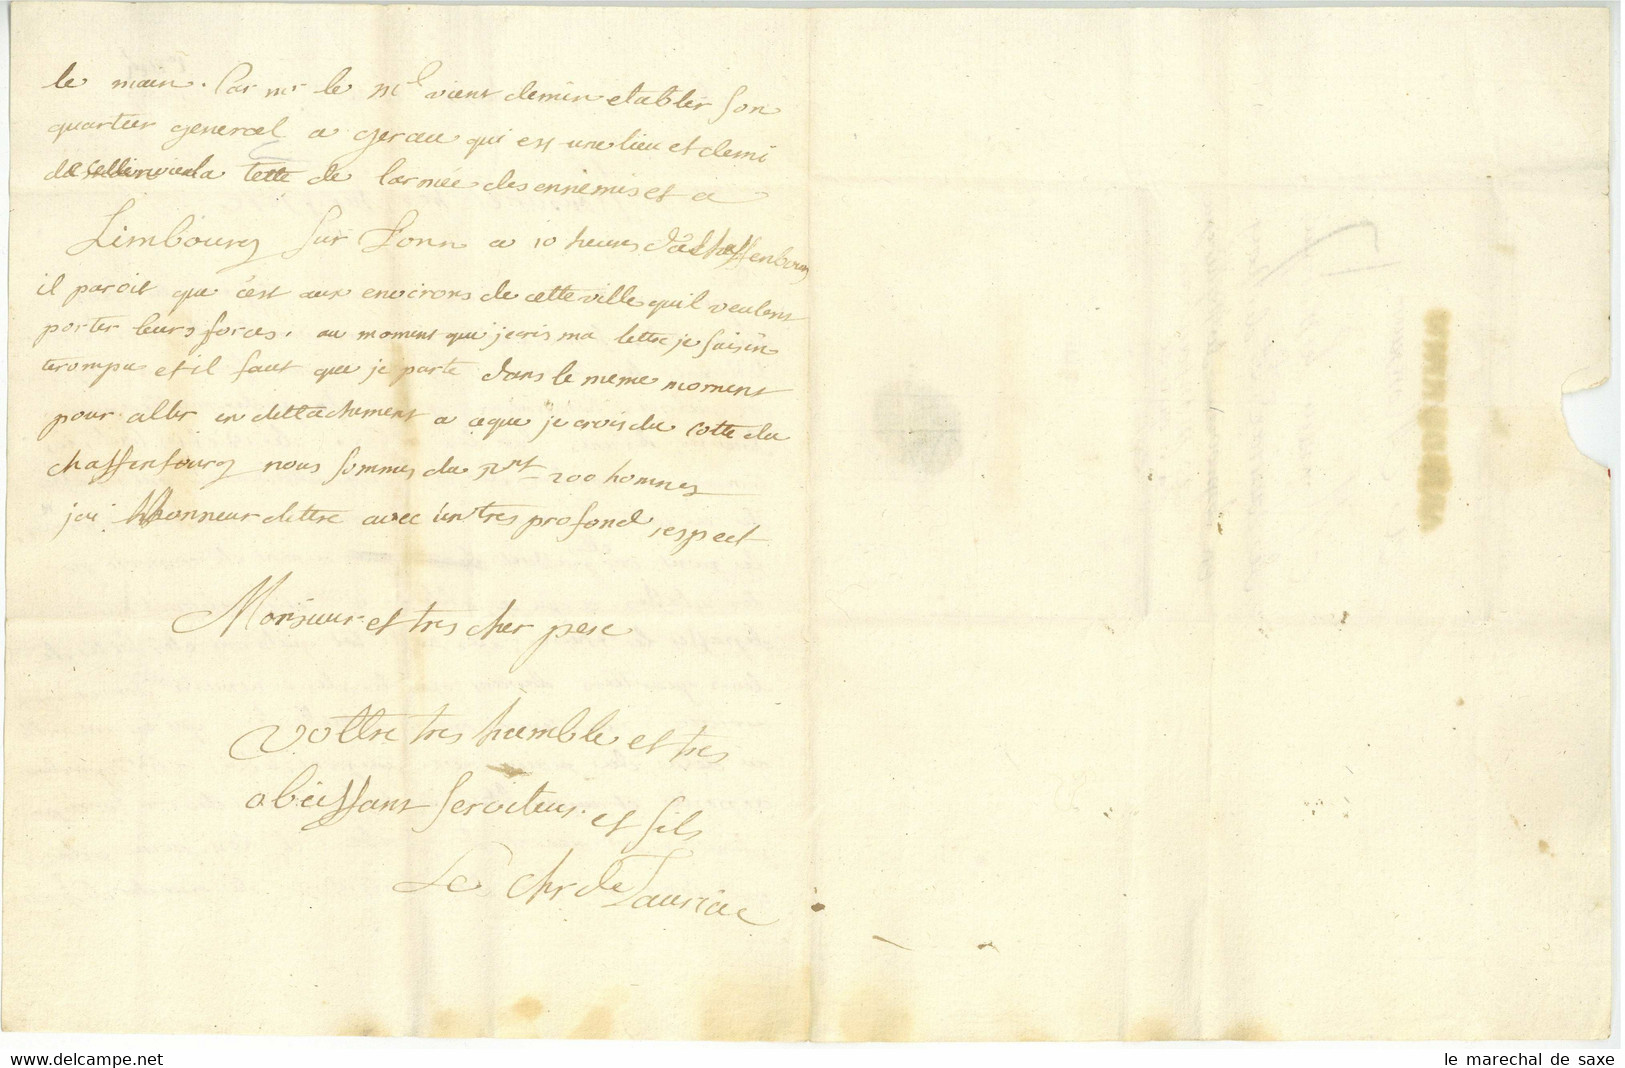 le main. Car mr le Ml vient demin etablir son
quartier general a gerau qui est une lieu et demi
la tette de larmée des ennemis et a
Limbourg sur Lonn a 10 heures d'aschaffenbourg
il paroit que c'est aux environs de cette ville quil veulent
porter leurs forces. au moment que j'ecris ma lettre je suis in
terompu et il faut que je parte dans le meme moment
pour aller en dettachement a ceque je crois du cotte da
chaffenbourg nous sommes du rnt 200 hommes
jai lhonneur dettre avec un tres profond respect
Monsieur et tres cher pere
vottre tres humble et tres
obeissant serviteur et fils
Le chr de Lauriac
le marechal de saxe